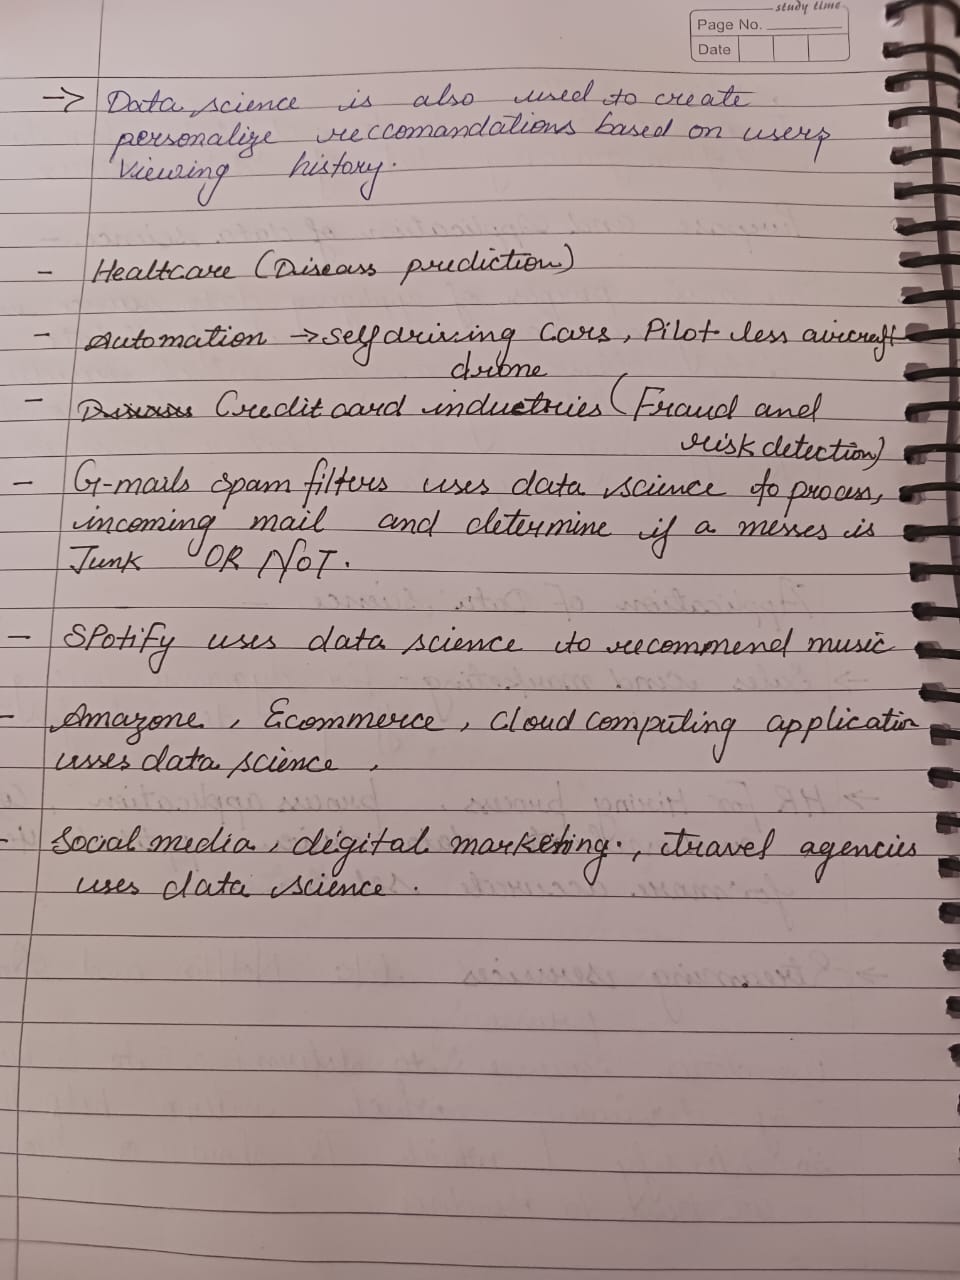 study time
Page No.
Date
→ Data science is also used to create
personalize reccomandations based on users
viewing history.
- Healtcare (Diseass prediction)
- Automation → self driving Cars, Pilot less aircraft
drone
- Credit card industries (Fraud and
risk detection)
- G-mails spam filters uses data science to process,
incoming mail and determine if a messes is
Junk OR NOT.
- SPotify uses data science to recommend music
- Amazone, Ecommerce, Cloud computing application
usses data science,
- Social media, digital marketing., travel agencies
uses data science.